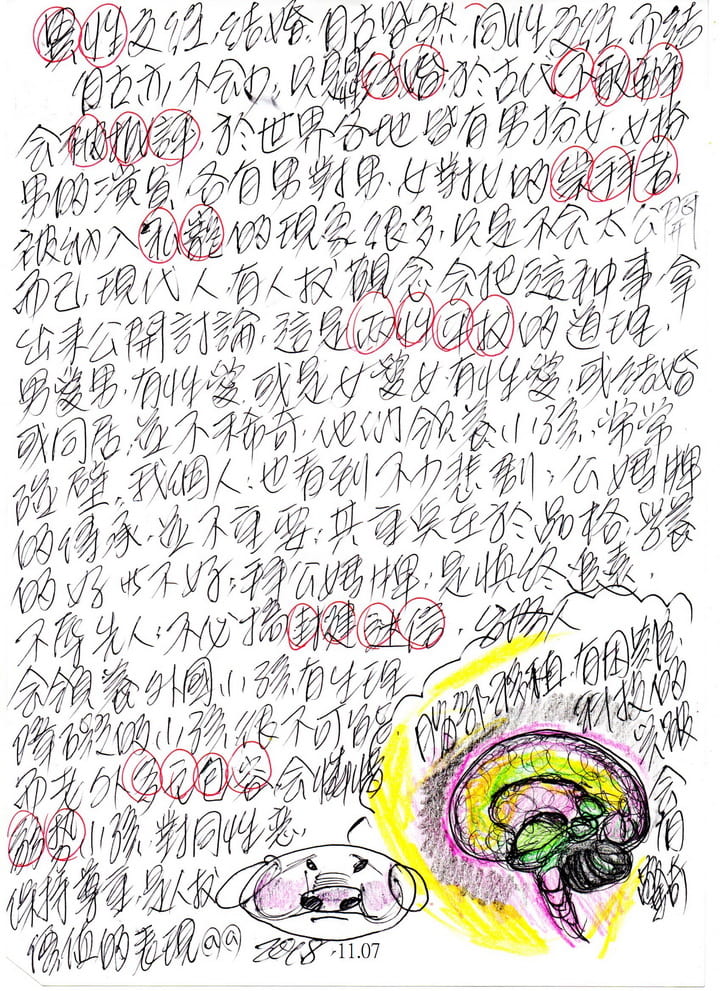 異性交往,結婚,自古皆然,同性交往,而結
自古亦不会少,只是結婚於古代不敢聲
会被批評,於世界各地皆有男扮女,女扮
男的演員,各有男對男,女對女的
被納入私密的現象很多,只是不会太公開
而已,現代人,有人权觀念会把這种事,拿
出來公開討論,這是两性平权的道理,
男愛男,有性愛,或是女愛女,有性愛,或結婚
或同居,並不稀奇,他們領養小孩,常常
碰壁,我個人,也看到不少悲劇;公媽牌
的傳承,並不重要,其重点在於品格,
的好與不好;拜公媽牌,是慎終追遠,
不辱先人;不必搞封建迷信,台灣人
会領養外國小孩,有生理
障礙的小孩很不可能,
而老外会
小孩,對同性恋
保持尊重,是人权
價值的表現@@ 2018.11.07
有因
科技的
突破
会有